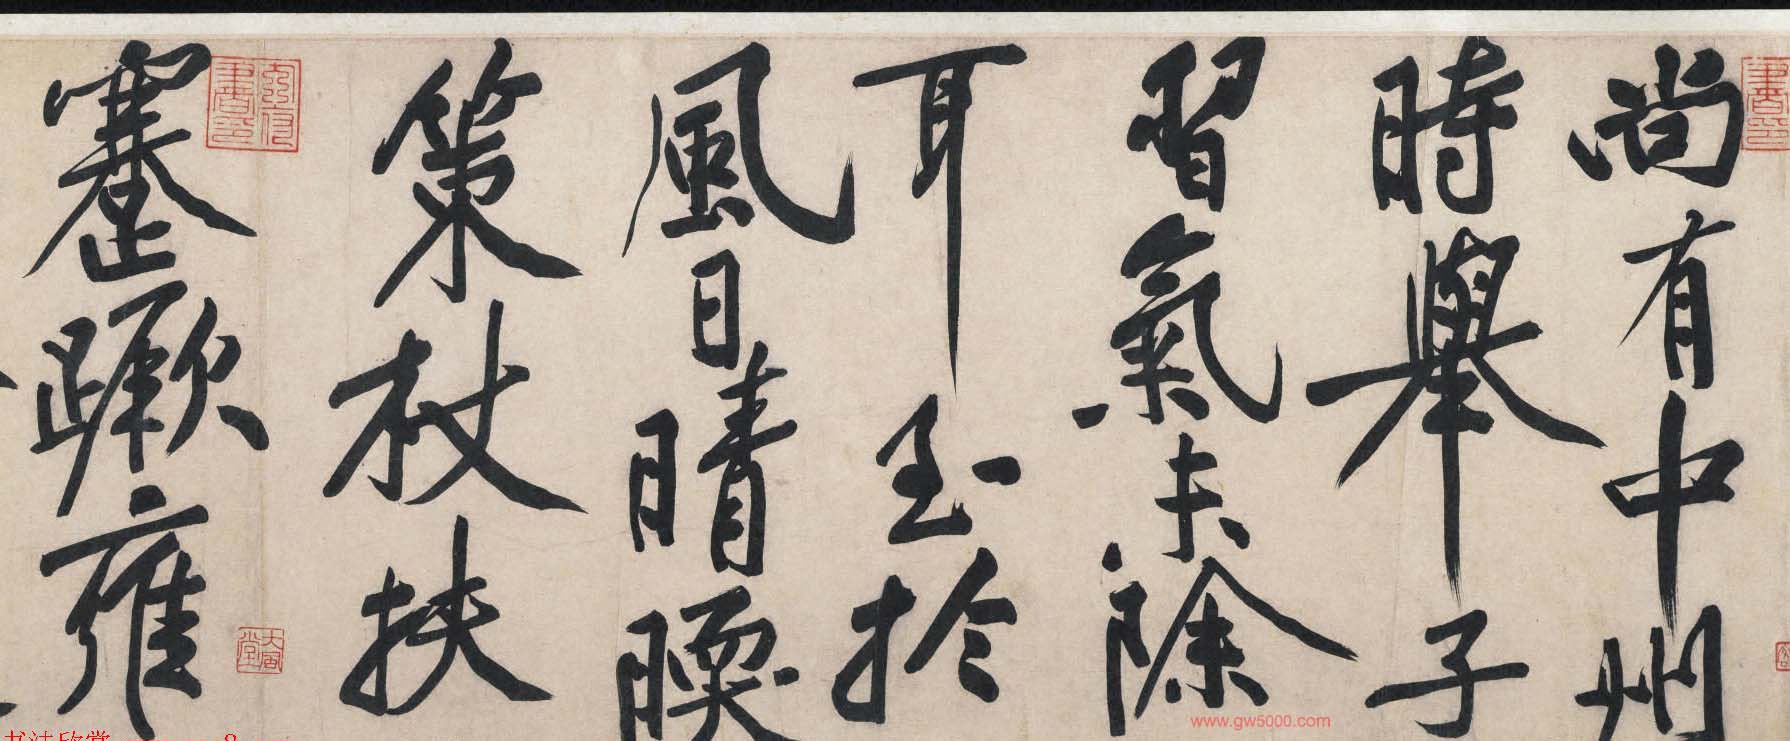 尚有中州
時舉子
習氣未除
耳至於
風日晴暖
策杖扶
蹇蹶雍
www.gw5000.com